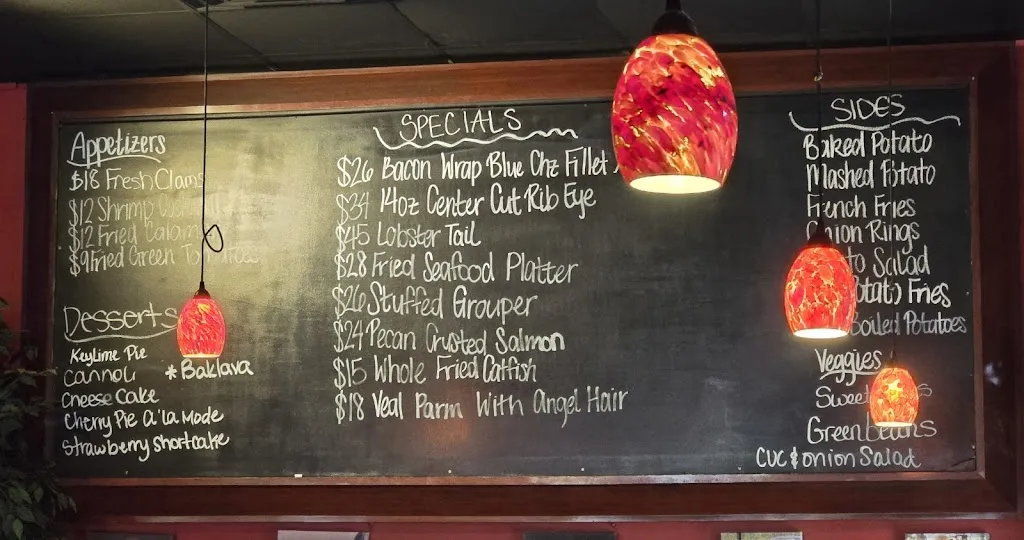 Appetizers
$18 Fresh Clams
$12 Shrimp
$12 Fried
$9 Fried Green Tomatoes
Desserts
KeyLime Pie
Cannoli *Baklava
Cheese Cake
Cherry Pie a'la Mode
Strawberry shortcake
SPECIALS
$26 Bacon Wrap Blue Chz Fillet
$34 14oz Center Cut Rib Eye
$45 Lobster Tail
$28 Fried Seafood Platter
$26 Stuffed Grouper
$24 Pecan Crusted Salmon
$15 Whole Fried Catfish
$18 Veal Parm With Angel Hair
SIDES
Baked Potato
Mashed Potato
French Fries
Onion Rings
Salad
Fries
Boiled Potatoes
Veggies
Sweet
Green Beans
CUC & onion Salad